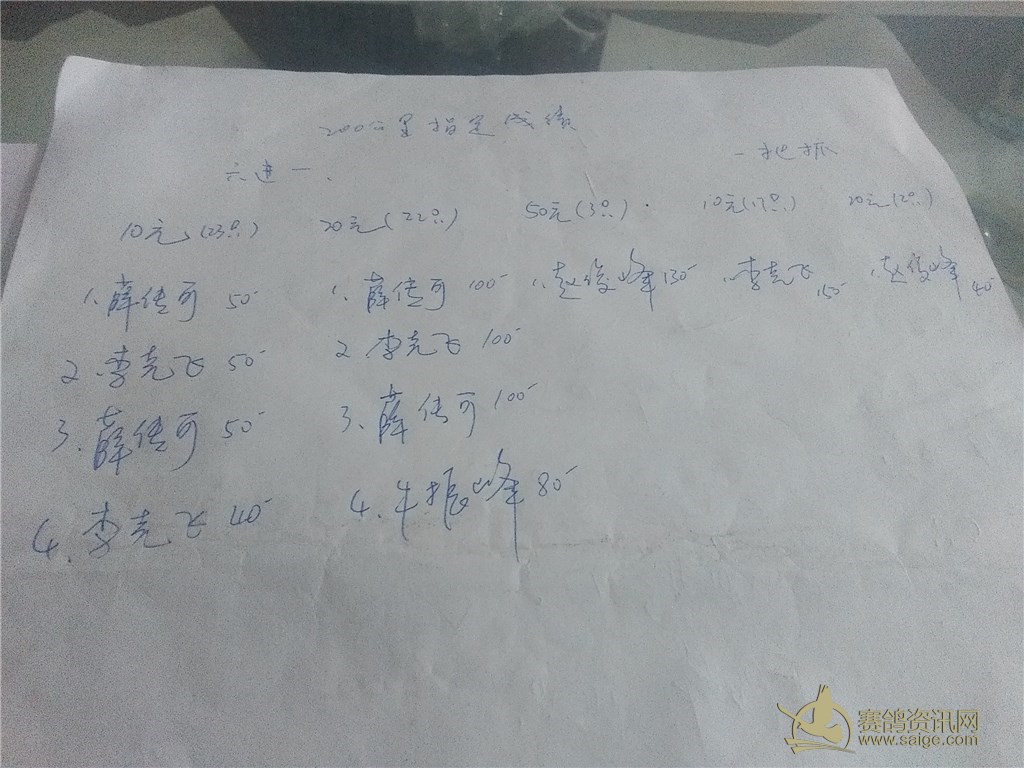 200公里指定成绩
六进一、 一把抓
10元(23只) 20元(22只) 50元(3只). 10元(17只) 20元(2只)
1.薛传可 50- 1.薛传可 100- 1.赵俊峰 150- 1.李克飞 150- 1.赵俊峰 40-
2.李克飞 50- 2.李克飞 100-
3.薛传可 50- 3.薛传可 100-
4.李克飞 40- 4.牛振峰 80-
赛鸽资讯网
www.saige.com